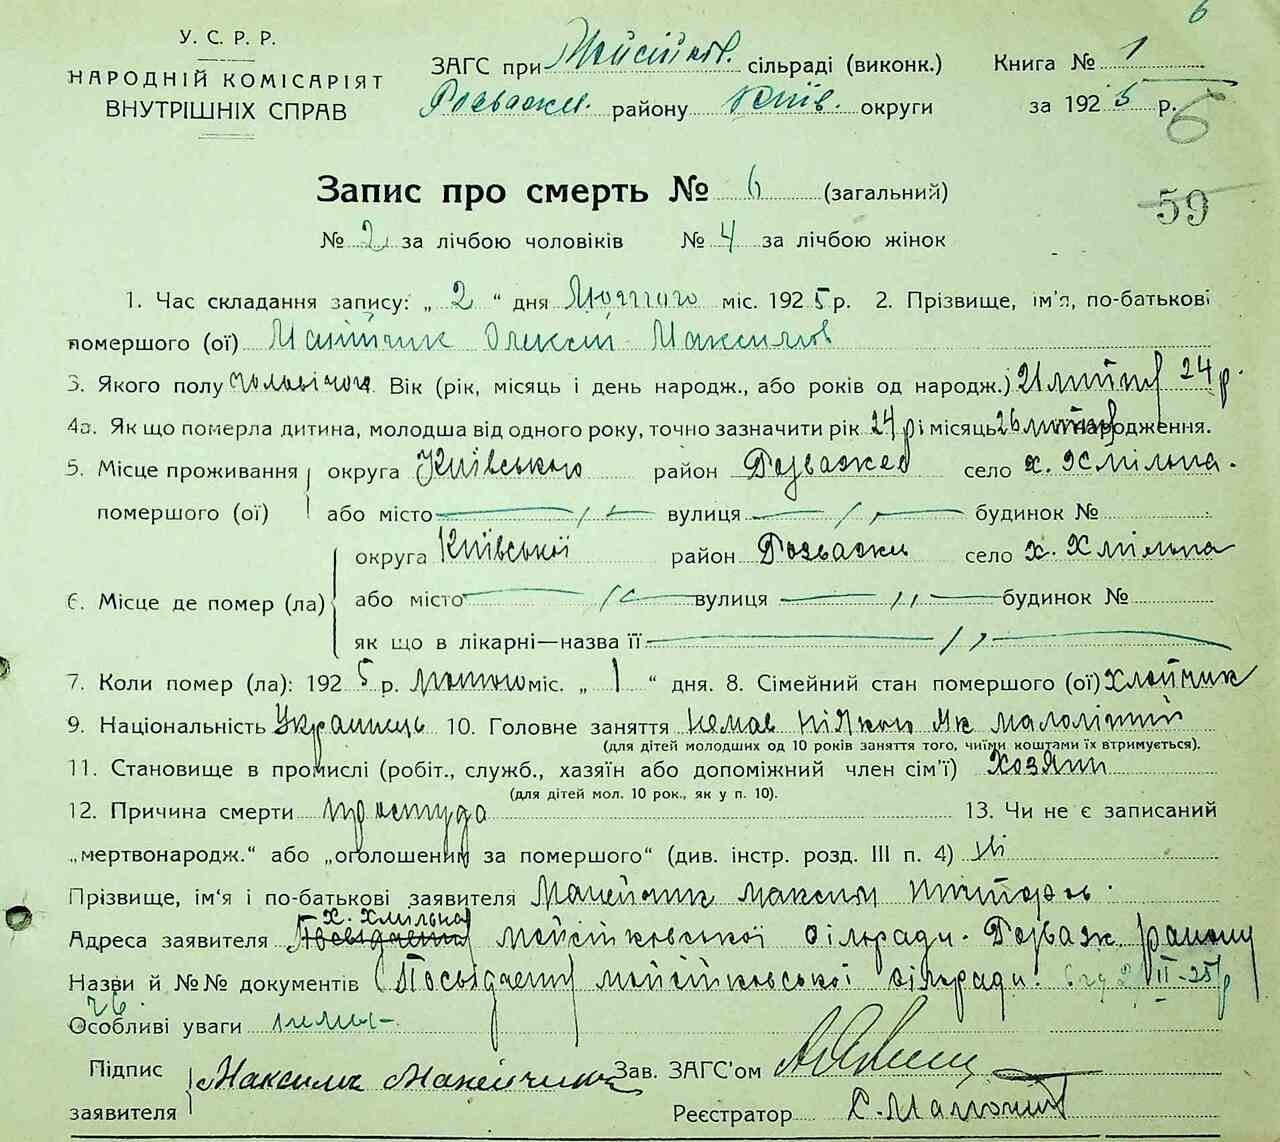 6
У. С. Р. Р.
НАРОДНІЙ КОМІСАРІЯТ
ВНУТРІШНІХ СПРАВ
ЗАГС при Мойсійков. сільраді (виконк.) Книга № 1
Розважев. району Київ. округи за 1925 р.
6
Запис про смерть № 6 (загальний)
59
№ 2 за лічбою чоловіків № 4 за лічбою жінок
1. Час складання запису: „ 2 “ дня Лютого міс. 1925 р. 2. Прізвище, ім'я, по-батькові
помершого (ої) Олексій Максимов
3. Якого полу чоловічого Вік (рік, місяць і день народж., або років од народж.) 21 24 р.
4а. Як що померла дитина, молодша від одного року, точно зазначити рік 24 р і місяць 26 народження.
5. Місце проживання округа Київського район Розважев село х. Хмільна.
помершого (ої) або місто вулиця будинок №
округа Київської район Розважев село х. Хмільна
6. Місце де помер (ла) або місто вулиця будинок №
як що в лікарні—назва її
7. Коли помер (ла): 1925 р. лютого міс. „ 1 “ дня. 8. Сімейний стан помершого (ої) Хлопчик
9. Національність Українець 10. Головне заняття немав ніякого як малолітній
(для дітей молодших од 10 років заняття того, чиїми коштами їх втримується).
11. Становище в промислі (робіт., служб., хазяїн або допоміжний член сім'ї) Хозяїн
(для дітей мол. 10 рок., як у п. 10).
12. Причина смерти простуда 13. Чи не є записаний
„мертвонародж.“ або „оголошеним за помершого“ (див. інстр. розд. III п. 4) ні
Прізвище, ім'я і по-батькові заявителя Максим
х. Хмільна
Адреса заявителя Мойсійковської сільради. Розваж району
Назви й №№ документів Посвідаеня мойсійковської сільради. 2/II-25 р
№ 26
Особливі уваги
Підпис заявителя Максим Зав. ЗАГС'ом
Реєстратор